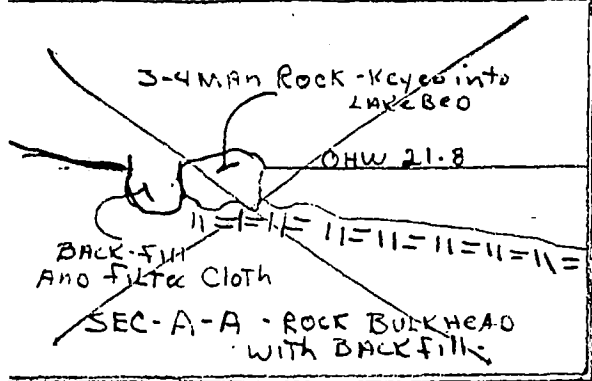 3-4 MAN ROCK - Keyed into
LAKE BED
OHW 21.8
BACK-fill
AND filter Cloth
SEC-A-A - ROCK BULKHEAD
with BACKfill